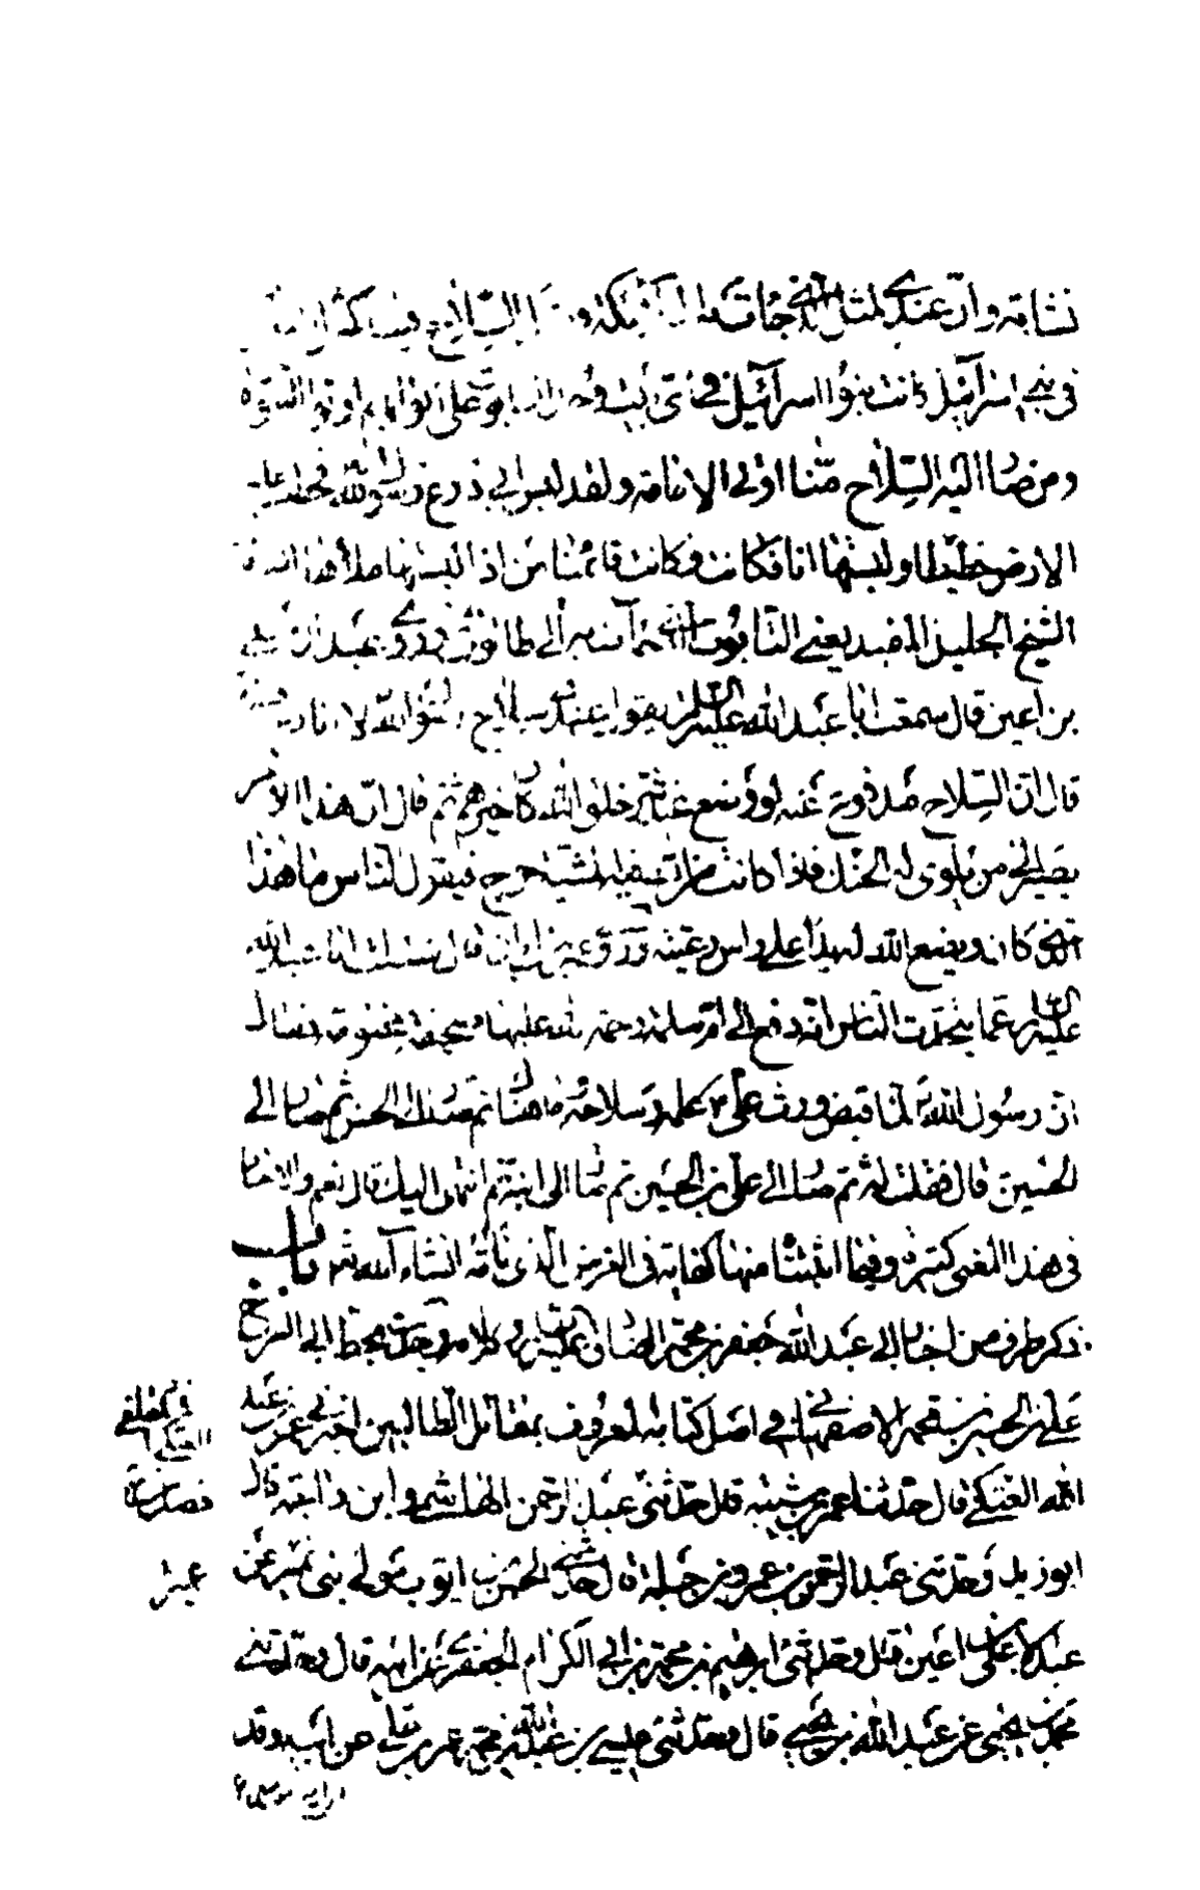 نشابة وان عندي لمثل الذي جاءت به الملائكة ومثل السلاح فينا كمثل التابوت
في بني اسرآئيل كانت بنوا اسرآئيل في اي بيت وجد التابوت على ابوابهم اوتوا النبوة
ومن صار اليه السلاح منا اوتى الامامة ولقد لبس ابي درع رسول الله فخطت عليه
الارض خطيطا ولبستها انا فكانت وكانت وقائمنا من اذا لبسها ملأها انشاء
الشيخ الجليل المفيد يعني التابوت الذي جاءت به الى طالوت وروى عبد الاعلى
بن اعين قال سمعت ابا عبد الله عليه السلم يقول عندي سلاح رسول الله لا انازع فيه
قال ان السلاح مدفوع عنه لو وضع عند شر خلق الله كان خيرهم ثم قال ان هذا الامر
يصير الى من يلوى له الحنك فاذا كانت من الله فيه المشية خرج فيقول الناس ما هذا
الذي كان ويضع الله له يدا على راس رعيته وروى عمر بن ابان قال سئلت ابا عبد الله
عليه السلم عما يتحدث الناس انه دفع الى ام سلمة رحمة الله عليها صحيفة مختومة فقال
ان رسول الله لما قبض ورث علي ع علمه وسلاحه وما هناك ثم صار الى الحسن ثم صار الى
الحسين قال فقلت له ثم صار الى علي بن الحسين ثم الى ابنه ثم انتهى اليك قال نعم والاخبار
في هذا المعنى كثيرة وفيما اثبتنا منها كفاية في الغرض الذي نأمه انشاء الله باب
ذكر طرف من اخبار ابي عبد الله جعفر بن محمد الصادق عليه السلم وكلامه وجدت بخط ابي الفرج
علي بن الحسين بن محمد الاصفهاني في اصل كتابه المعروف بمقاتل الطالبيين اخبرني عمر بن عبد
الله العتكي قال حدثنا عمر بن شبة قال حدثني عبد الرحمن الهاشمي وابن داجة قال
ابو زيد وحدثني عبد الرحمن بن عمرو بن جبلة قال حدثني الحسن بن ايوب مولى بني نمير عن
عبد الاعلى بن اعين قال وحدثني ابرهيم بن محمد بن ابي الكرام الجعفري عن ابيه قال وحدثني
محمد بن يحيى عن عبد الله بن يحيى قال وحدثني عيسى بن عبد الله بن محمد بن عمر بن علي عن ابيه وقد